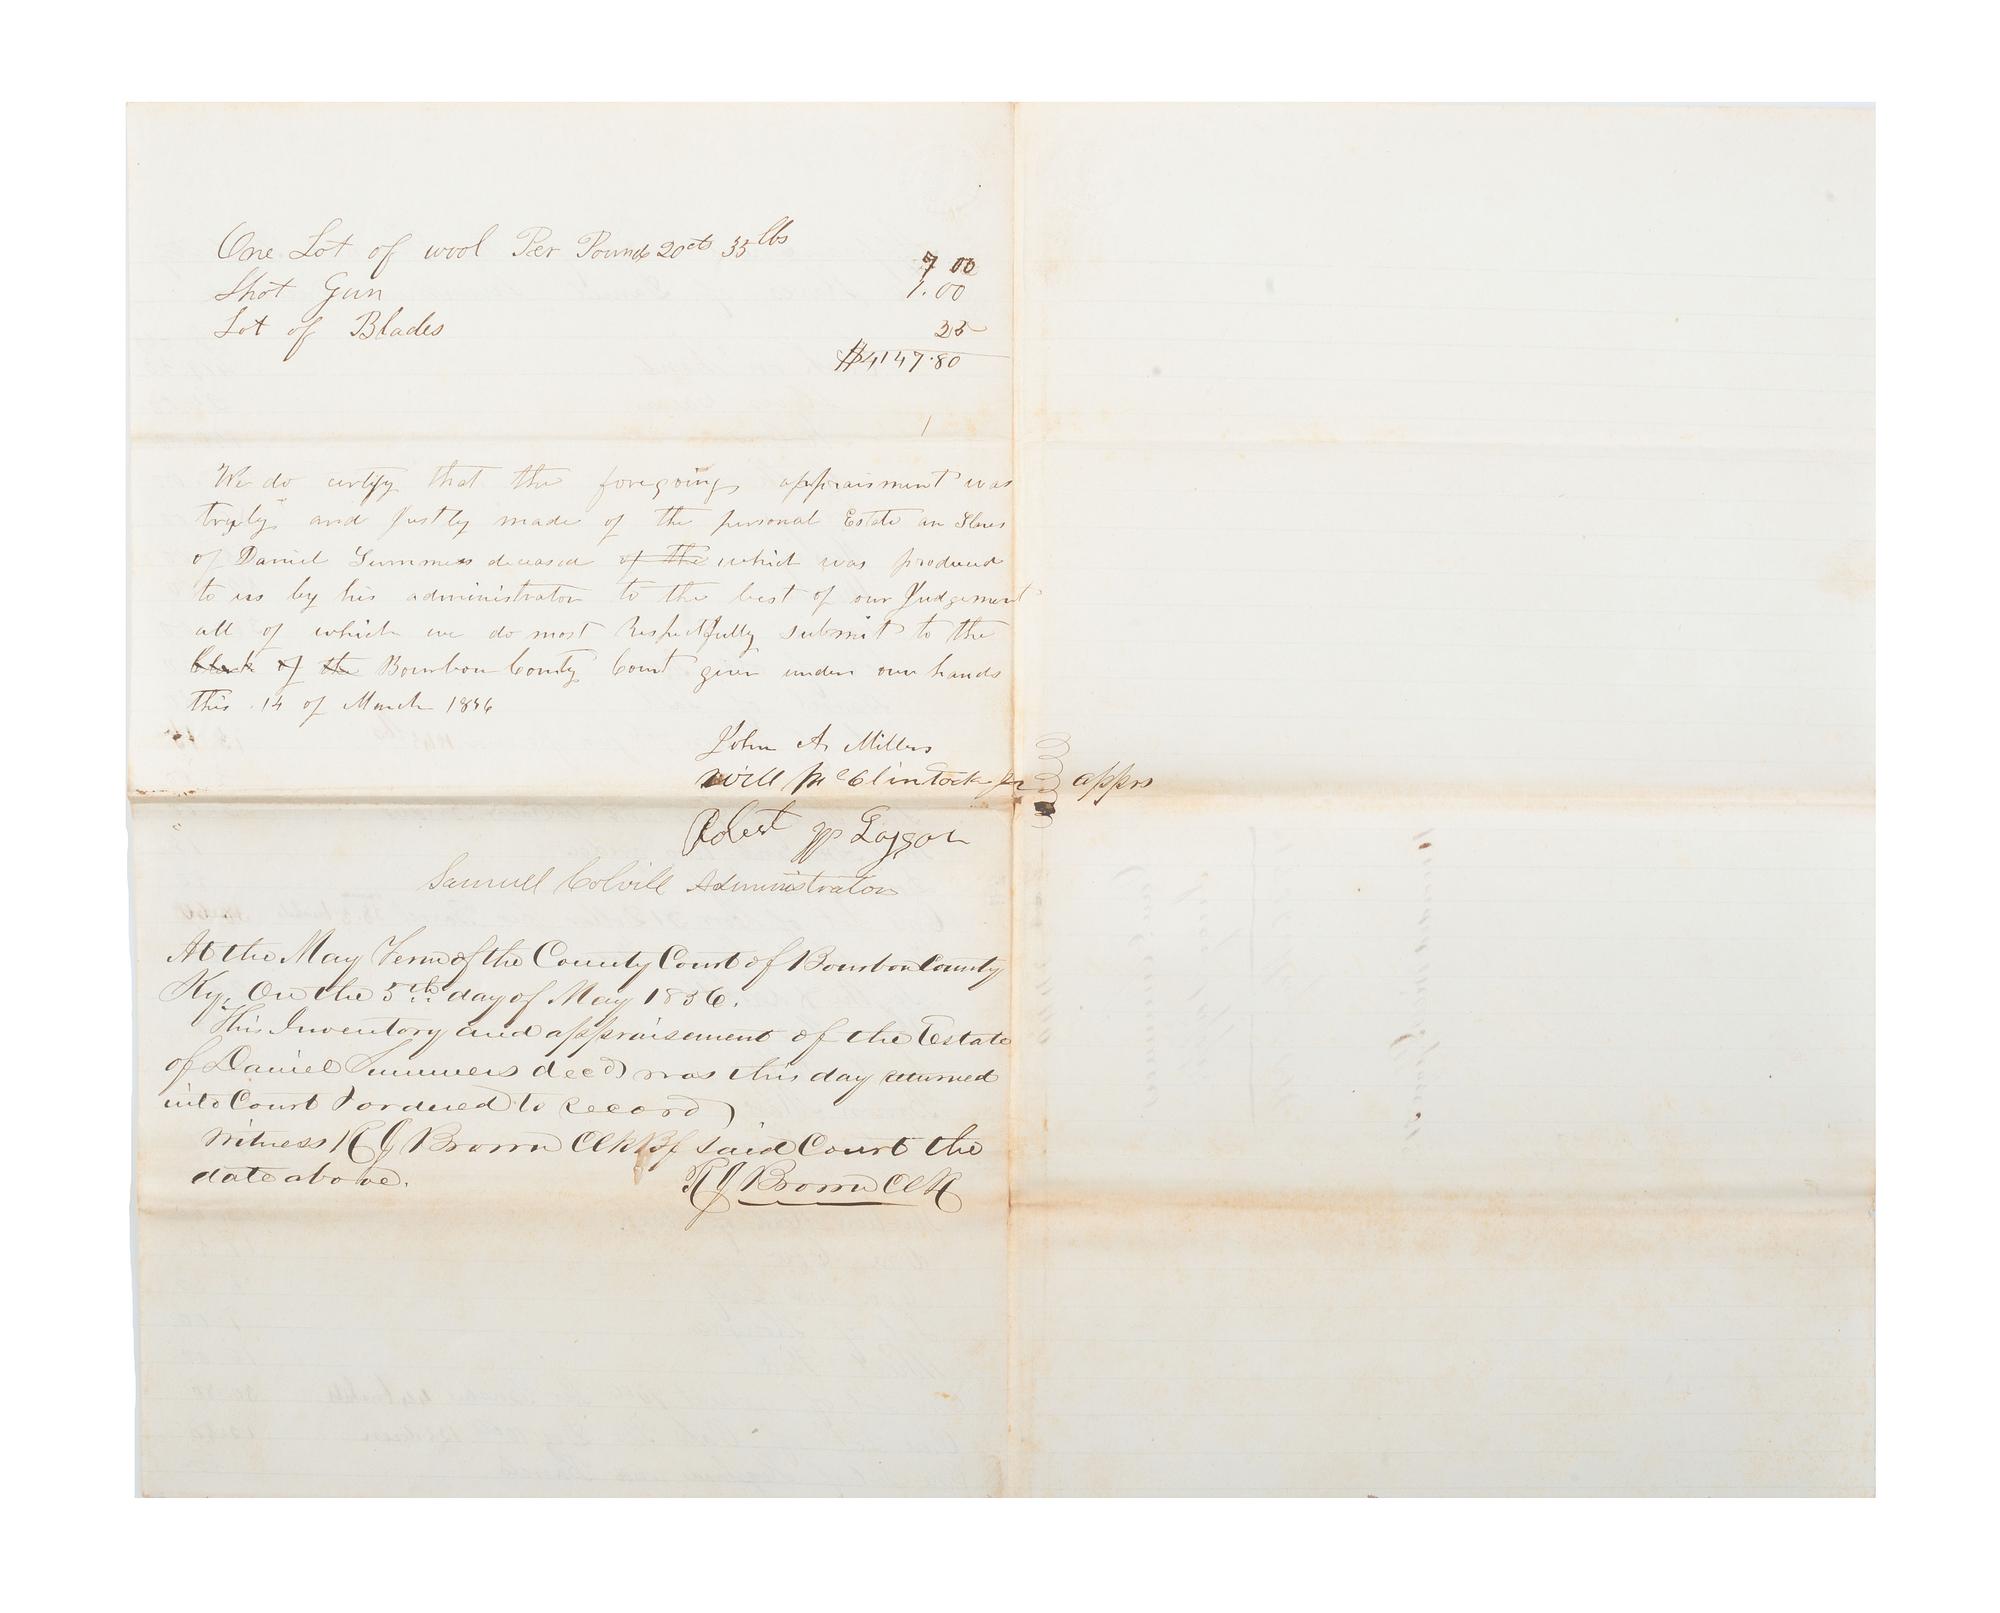 One Lot of wool Per Pound 20cts 35 lbs 7 00
Shot Gun 1.00
Lot of Blades 25
$4147.80
We do certify that the foregoing appraisment was
truly and Justly made of the personal Estate an Slaves
of Daniel Summers deceased of the which was produced
to us by his administrator to the best of our Judgement
all of which we do most Respectfully submit to the
Clerk of the Bourbon County Court given under our hands
this 14 of March 1856
John A Millers
Will McClintock Jr apprs
Robert
Samuell Colvill Administrator
At the May Term of the County Court of Bourbon County
Ky. On the 5th day of May 1856.
This Inventory and appraisement of the Estate
of Daniel Summers decd was this day returned
into Court & ordered to record
Witness R J Brown Clk of said Court the
date above.
R J Brown Clk